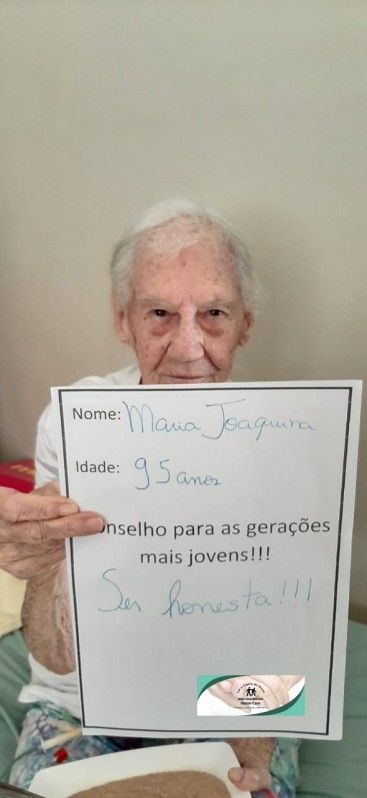 Nome: Maria Joaquina
Idade: 95 anos
onselho para as gerações
mais jovens!!!
Ser honesta!!!
Home Care